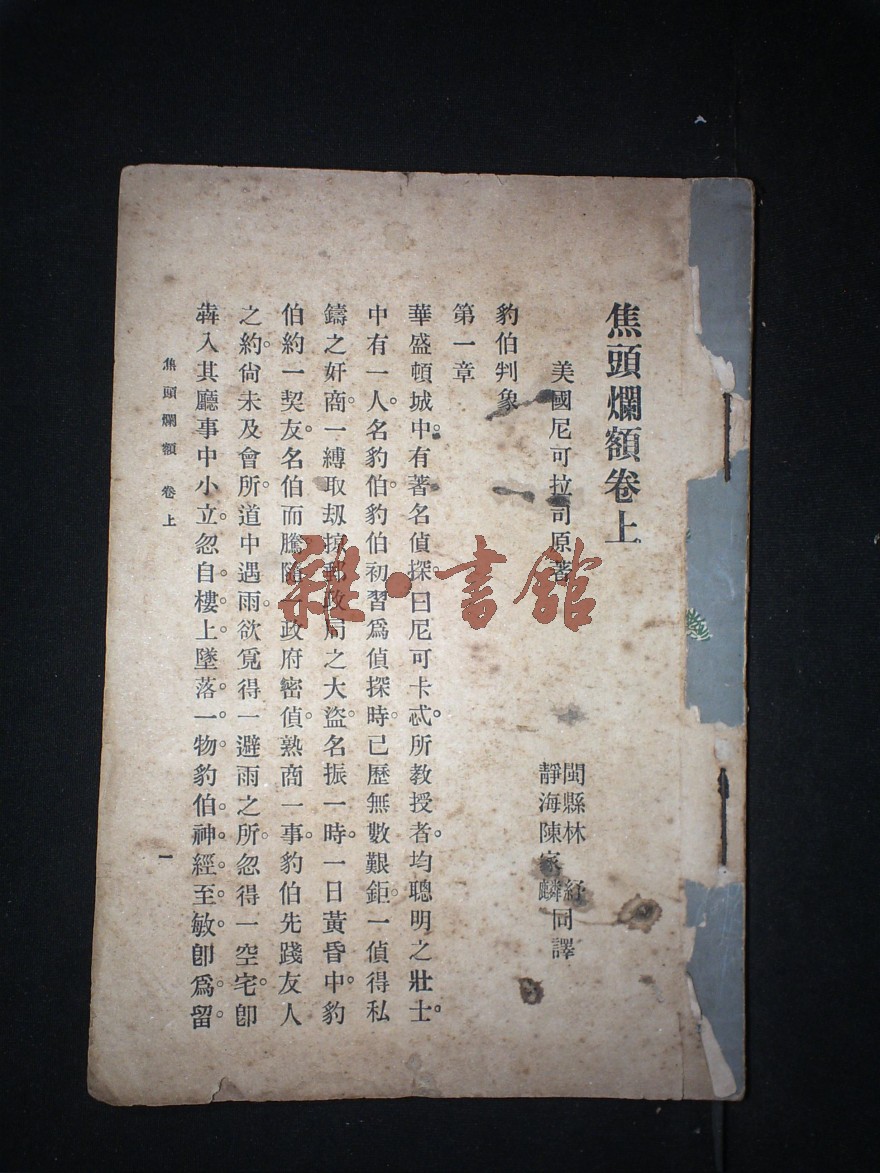 焦頭爛額卷上
美國尼可拉司原著
閩縣林　紓
靜海陳家麟同譯
豹伯判象
第一章
華盛頓城中。有著名偵探。曰尼可卡忒。所教授者。均聰明之壯士。
中有一人。名豹伯。豹伯初習爲偵探時。已歷無數艱鉅。一偵得私
鑄之奸商。一縛取刼掠郵政局之大盜。名振一時。一日黃昏中。豹
伯約一契友。名伯而騰。隨一政府密偵。熟商一事。豹伯先踐友人
之約。尙未及會所。道中遇雨。欲覓得一避雨之所。忽得一空宅。卽
犇入其廳事中小立。忽自樓上墜落一物。豹伯神經至敏。卽爲留。
焦頭爛額　卷上
一
雜·書館